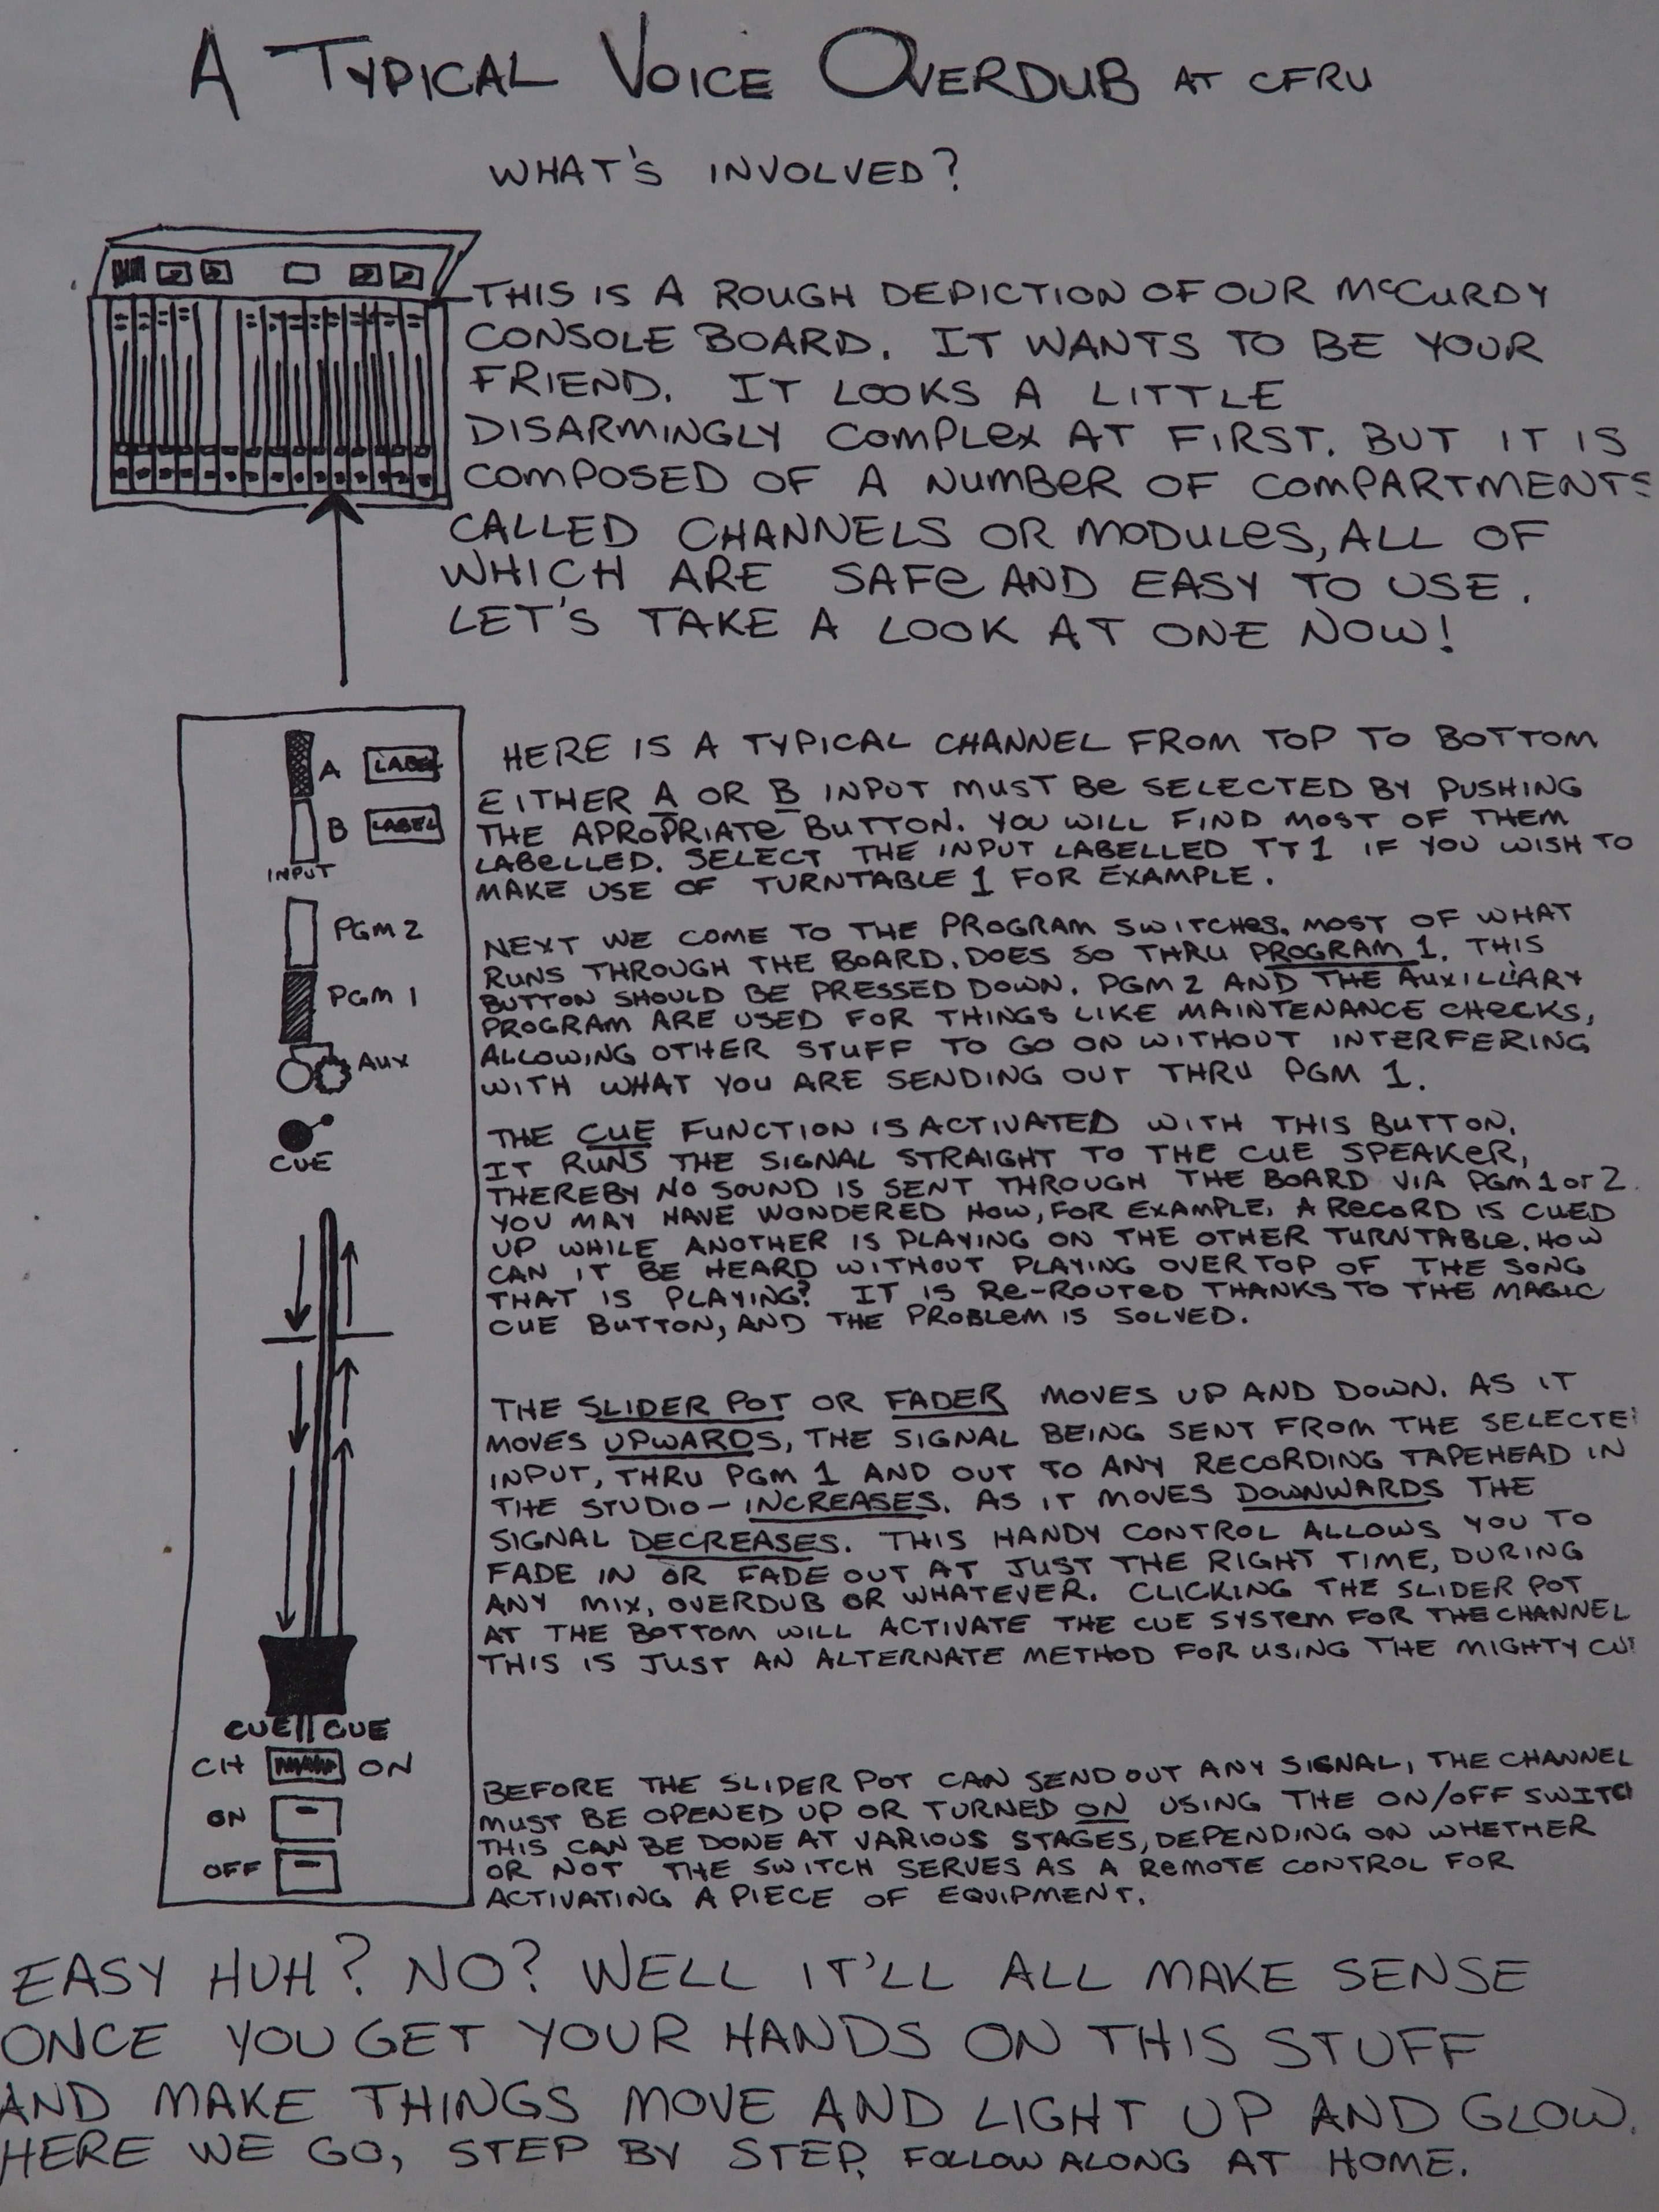 A TYPICAL VOICE OVERDUB AT CFRU
WHAT'S INVOLVED?
THIS IS A ROUGH DEPICTION OF OUR McCURDY
CONSOLE BOARD. IT WANTS TO BE YOUR
FRIEND. IT LOOKS A LITTLE
DISARMINGLY COMPLEX AT FIRST. BUT IT IS
COMPOSED OF A NUMBER OF COMPARTMENTS
CALLED CHANNELS OR MODULES, ALL OF
WHICH ARE SAFE AND EASY TO USE.
LET'S TAKE A LOOK AT ONE NOW!
A LABEL
B LABEL
INPUT
PGM 2
PGM 1
AUX
CUE
CUE CUE
CH ON
ON
OFF
HERE IS A TYPICAL CHANNEL FROM TOP TO BOTTOM
EITHER A OR B INPUT MUST BE SELECTED BY PUSHING
THE APROPRIATE BUTTON. YOU WILL FIND MOST OF THEM
LABELLED. SELECT THE INPUT LABELLED TT1 IF YOU WISH TO
MAKE USE OF TURNTABLE 1 FOR EXAMPLE.
NEXT WE COME TO THE PROGRAM SWITCHES. MOST OF WHAT
RUNS THROUGH THE BOARD, DOES SO THRU PROGRAM 1. THIS
BUTTON SHOULD BE PRESSED DOWN. PGM 2 AND THE AUXILLIARY
PROGRAM ARE USED FOR THINGS LIKE MAINTENANCE CHECKS,
ALLOWING OTHER STUFF TO GO ON WITHOUT INTERFERING
WITH WHAT YOU ARE SENDING OUT THRU PGM 1.
THE CUE FUNCTION IS ACTIVATED WITH THIS BUTTON.
IT RUNS THE SIGNAL STRAIGHT TO THE CUE SPEAKER,
THEREBY NO SOUND IS SENT THROUGH THE BOARD VIA PGM 1 or 2.
YOU MAY HAVE WONDERED HOW, FOR EXAMPLE, A RECORD IS CUED
UP WHILE ANOTHER IS PLAYING ON THE OTHER TURNTABLE. HOW
CAN IT BE HEARD WITHOUT PLAYING OVER TOP OF THE SONG
THAT IS PLAYING? IT IS RE-ROUTED THANKS TO THE MAGIC
CUE BUTTON, AND THE PROBLEM IS SOLVED.
THE SLIDER POT OR FADER MOVES UP AND DOWN. AS IT
MOVES UPWARDS, THE SIGNAL BEING SENT FROM THE SELECTE
INPUT, THRU PGM 1 AND OUT TO ANY RECORDING TAPEHEAD IN
THE STUDIO - INCREASES. AS IT MOVES DOWNWARDS THE
SIGNAL DECREASES. THIS HANDY CONTROL ALLOWS YOU TO
FADE IN OR FADE OUT AT JUST THE RIGHT TIME, DURING
ANY MIX, OVERDUB OR WHATEVER. CLICKING THE SLIDER POT
AT THE BOTTOM WILL ACTIVATE THE CUE SYSTEM FOR THE CHANNEL
THIS IS JUST AN ALTERNATE METHOD FOR USING THE MIGHTY CU
BEFORE THE SLIDER POT CAN SEND OUT ANY SIGNAL, THE CHANNEL
MUST BE OPENED UP OR TURNED ON USING THE ON/OFF SWITC
THIS CAN BE DONE AT VARIOUS STAGES, DEPENDING ON WHETHER
OR NOT THE SWITCH SERVES AS A REMOTE CONTROL FOR
ACTIVATING A PIECE OF EQUIPMENT.
EASY HUH? NO? WELL IT'LL ALL MAKE SENSE
ONCE YOU GET YOUR HANDS ON THIS STUFF
AND MAKE THINGS MOVE AND LIGHT UP AND GLOW.
HERE WE GO, STEP BY STEP. FOLLOW ALONG AT HOME.